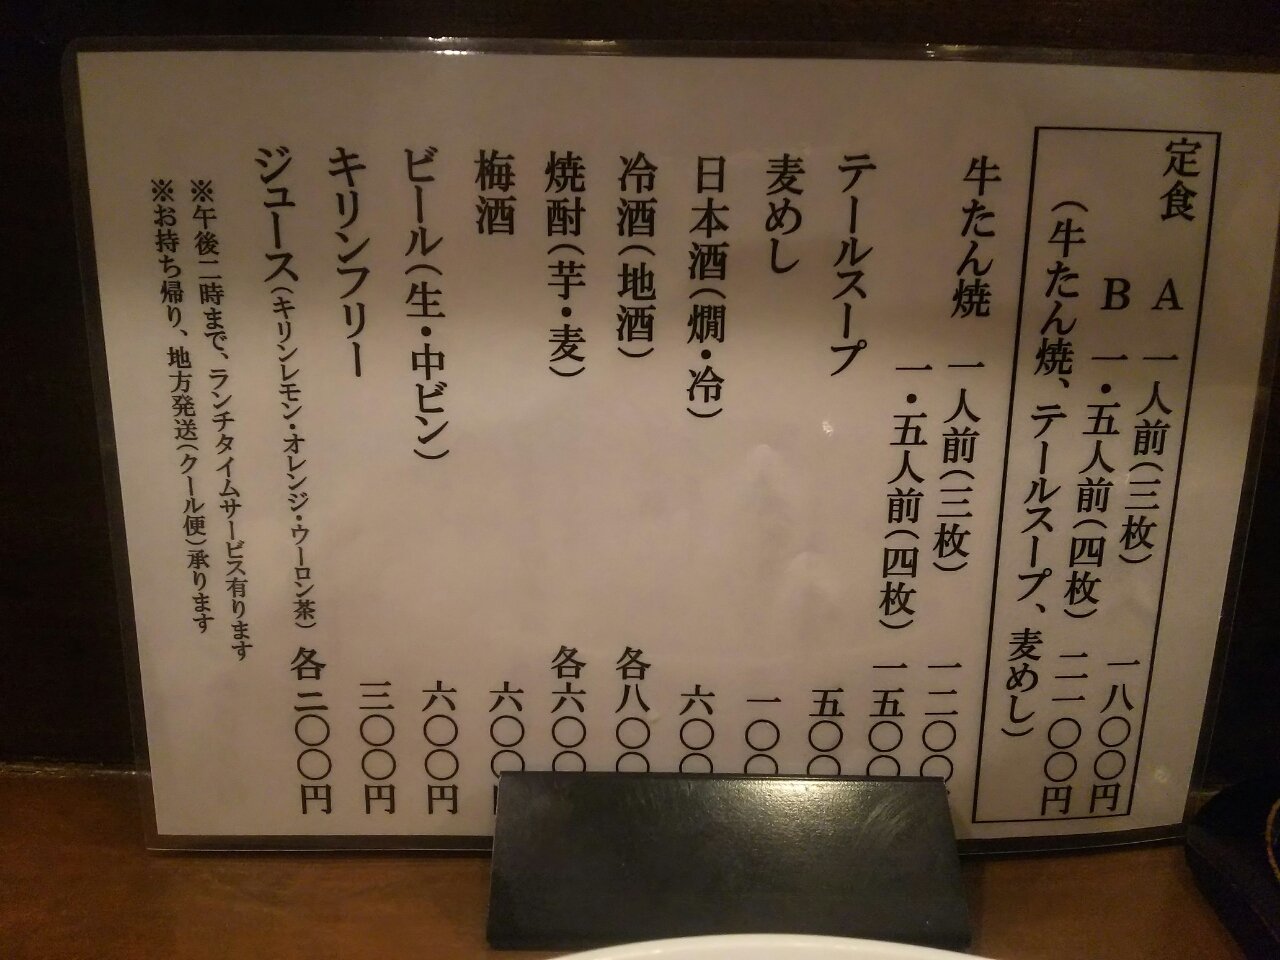 定食 A 一人前(三枚) 一八〇〇円
B 一・五人前(四枚) 二一〇〇円
(牛たん焼、テールスープ、麦めし)
牛たん焼 一人前(三枚) 一二〇〇
一・五人前(四枚) 一五〇〇
テールスープ 五〇〇
麦めし 一〇〇
日本酒(燗・冷) 六〇〇
冷酒(地酒) 各八〇〇
焼酎(芋・麦) 各六〇〇
梅酒 六〇〇
ビール(生・中ビン) 六〇〇円
キリンフリー 三〇〇円
ジュース(キリンレモン・オレンジ・ウーロン茶) 各二〇〇円
※午後二時まで、ランチタイムサービス有ります
※お持ち帰り、地方発送(クール便)承ります